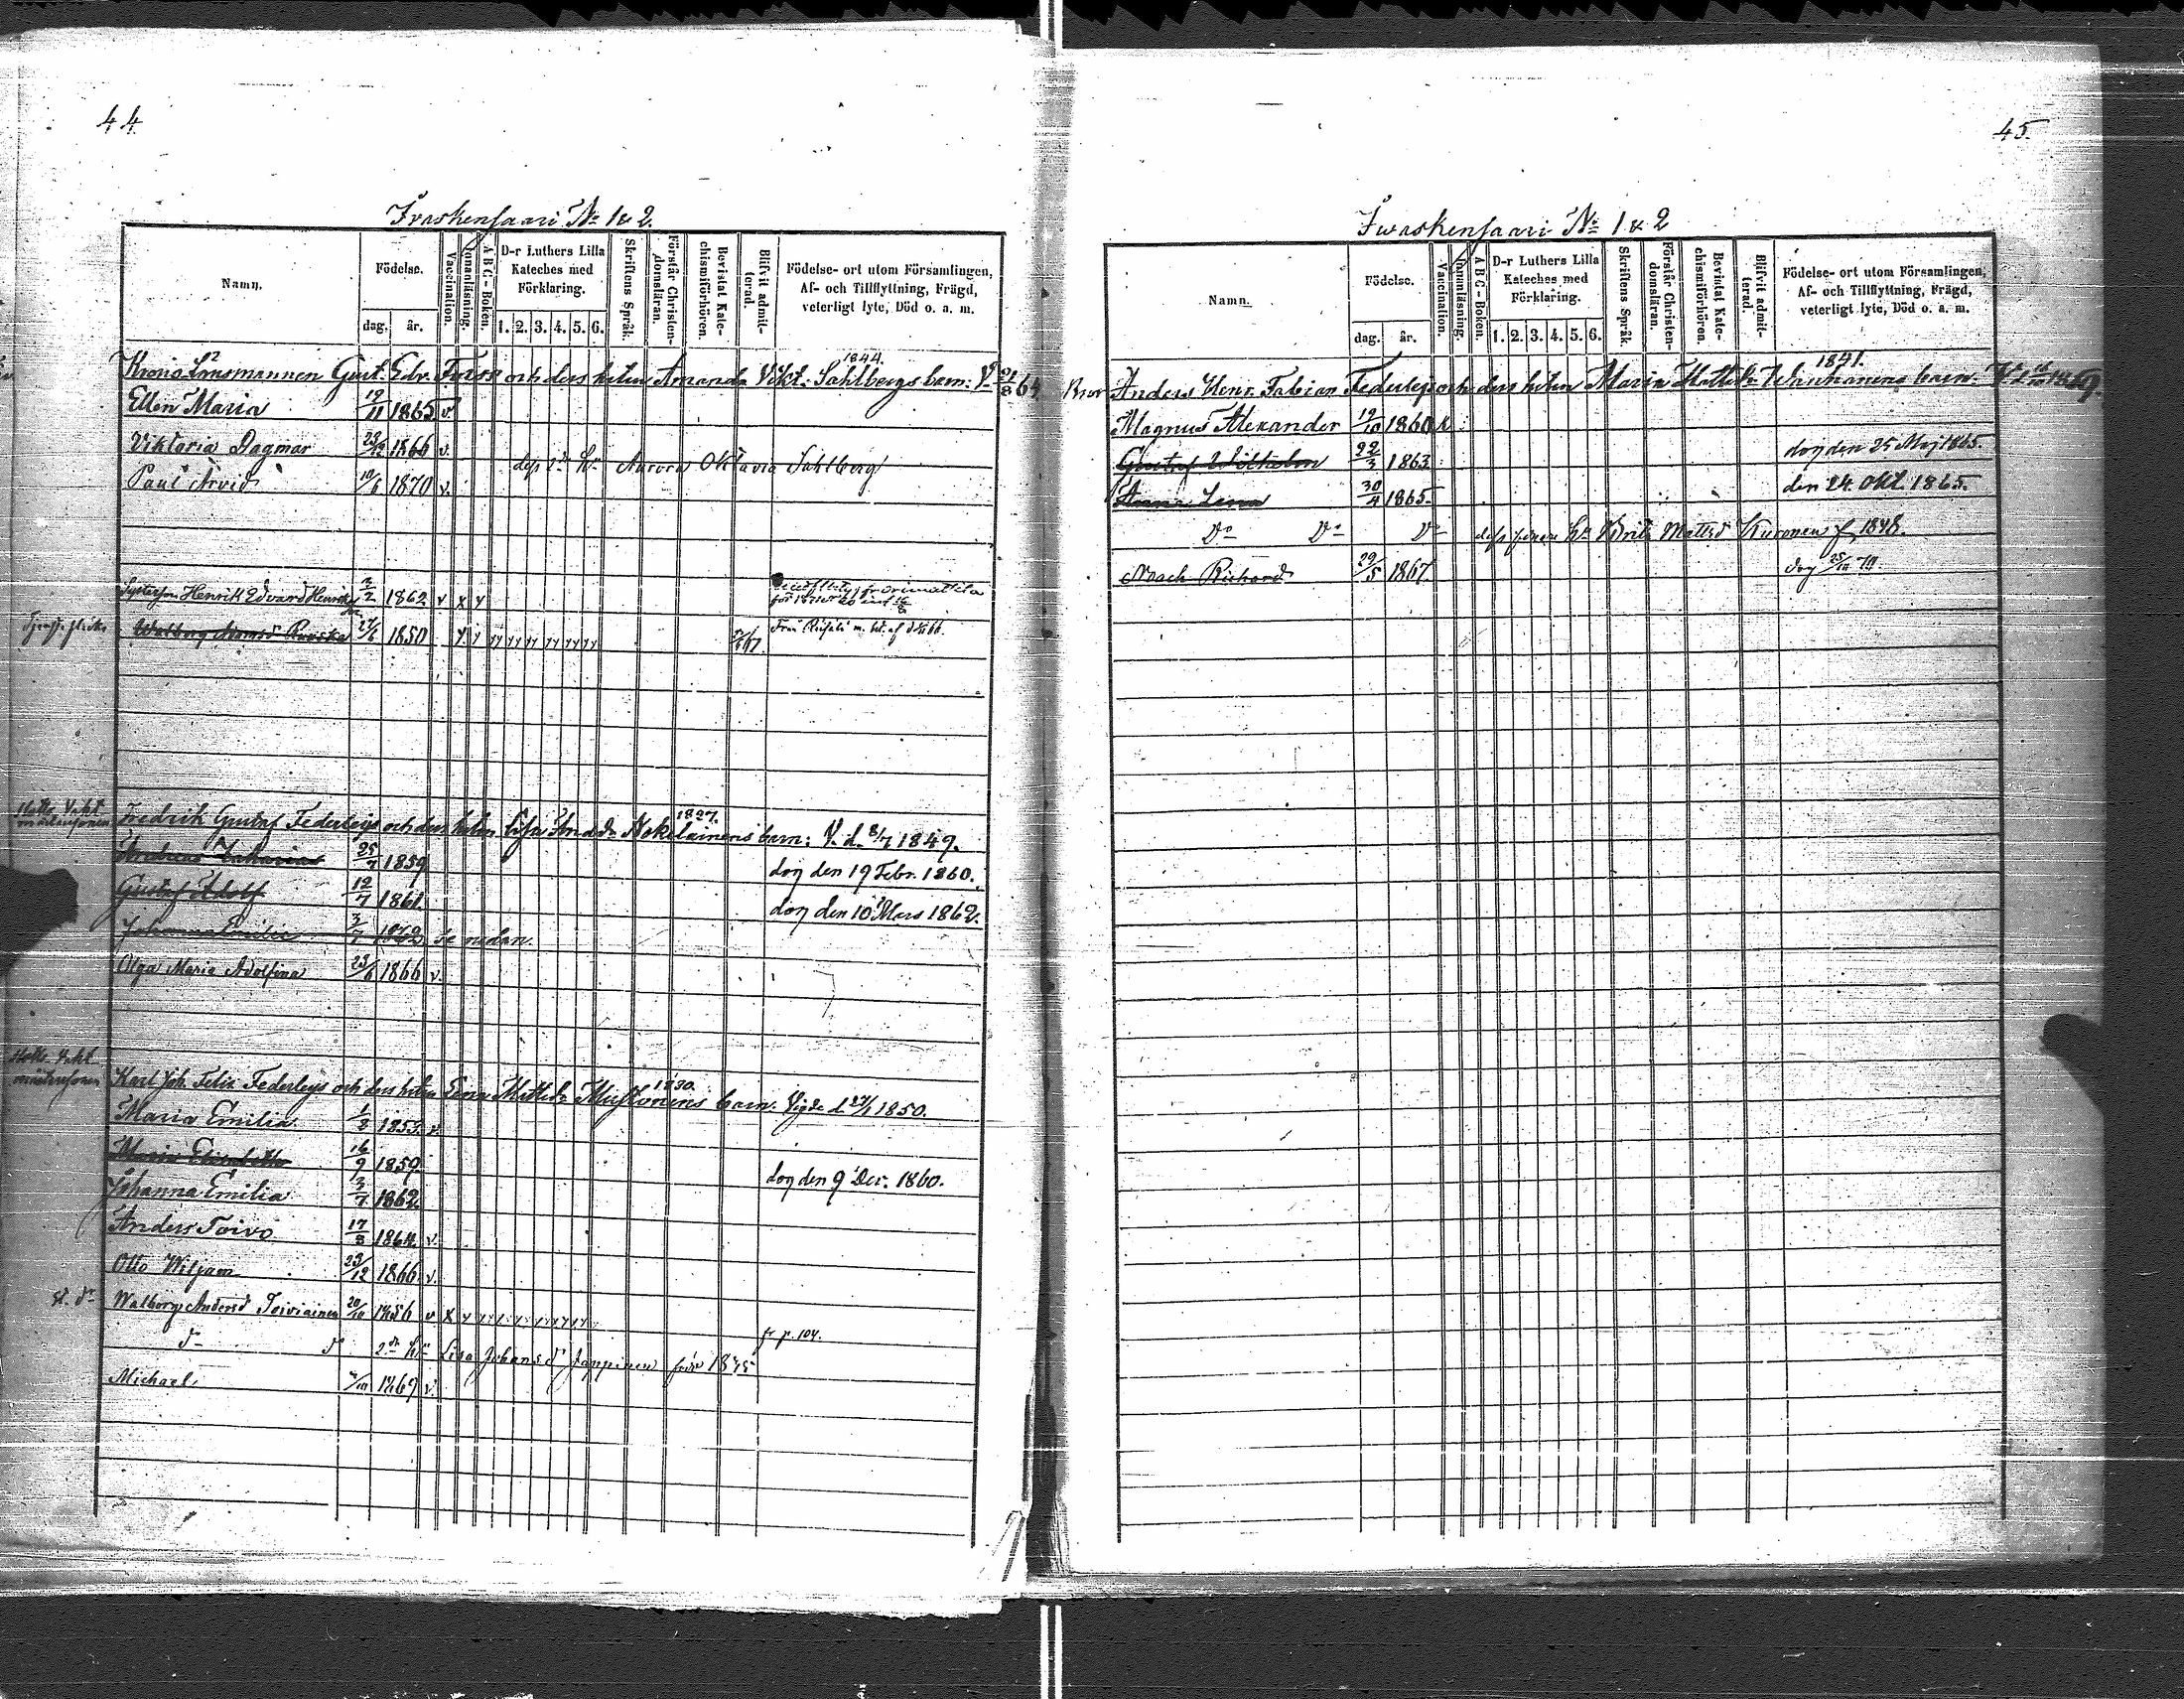 44
Iwaskensaari No 1 & 2.
Namn.
Födelse.
dag.
år.
Vaccination.
Innanläsning.
A B C - Boken.
D-r Luthers Lilla Kateches med Förklaring.
1. 2. 3. 4. 5. 6.
Skriftens Språk.
Förstår Christen-domsläran.
Bevistat Kate-chismiförhören.
Blifvit admit-terad.
Födelse- ort utom Församlingen,
Af- och Tillflyttning, Frägd,
veterligt lyte, Död o. a. m.
1844.
Krono Länsmannen Gust. Edv. Forss och dess hstru Amanda Vikt. Sahlbergs barn: V. 21/8 64.
Ellen Maria 19/11 1865 v.
Viktoria Dagmar 23/12 1866 v.
dess 2dr Ha Aurora Oktavia Sahlberg
Paul Arvid 10/6 1870 v.
Henrik Edvard 3/2 1862 v x y
Walborg 27/6 1850 y y
1827.
Fredrik Gustaf Federleys och dess hstru Lisa Nokelainens barn: V. d. 8/7 1849.
Andreas Zakarias 25/7 1859 dog den 19 Febr. 1860.
Gustaf Adolf 12/7 1861. dog den 10 Mars 1862.
Johanna Emilia 3/7 1862 se nedan.
Olga Maria Adolfina 23/6 1866 v.
1830.
Karl Joh. Felix Federleys och dess hstru Lena Mattsdr Mustonens barn. Vigde d 27/1 1850.
Maria Emilia 1/2 1853. v.
Maria Elisabeth 16/9 1859. dog den 9 Dec. 1860.
Johanna Emilia 3/7 1862.
Anders Toivo 17/8 1864. v.
Otto Wiljam 23/12 1866 v.
Walborg Andersd Toiviainen 20/10 1856 v x y fr p. 104.
d d 2dr Ha Lisa Johansd Jäppinen född 1845
Michael 1869 v.
45.
Iwaskensaari No 1 & 2
Namn.
Födelse.
dag.
år.
Vaccination.
Innanläsning.
A B C - Boken.
D-r Luthers Lilla Kateches med Förklaring.
1. 2. 3. 4. 5. 6.
Skriftens Språk.
Förstår Christen-domsläran.
Bevistat Kate-chismiförhören.
Blifvit admit-terad.
Födelse- ort utom Församlingen,
Af- och Tillflyttning, Frägd,
veterligt lyte, Död o. a. m.
1841.
Anders Henr. Fabian Federleys och dess hstru Maria Mattsdr barn.
Magnus Alexander 19/10 1860
Gustaf Wilhelm 22/3 1863. dog den 25 Maj 1865.
Anna Lena 30/4 1865. den 24. Okt. 1865.
Do Do Do dess senare Ha Brita Mattsd Kuronen f. 1848.
Noach Richard 29/5 1867. dog